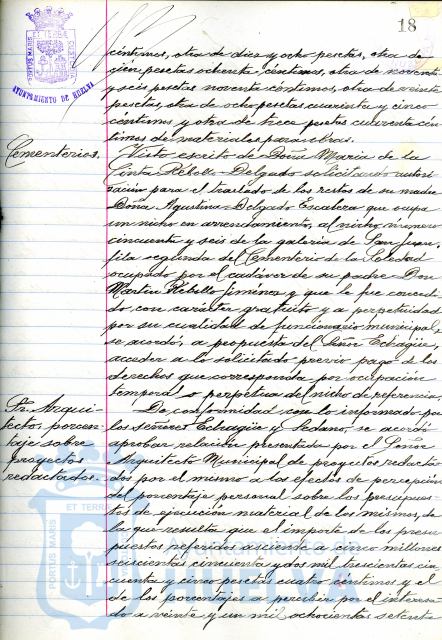 18
PORTUS MARIS ET TERRAE CUSTODIA
AYUNTAMIENTO DE HUELVA
céntimos, otra de diez y ocho pesetas, otra de
cien pesetas ochenta céntimos, otra de noventa
y seis pesetas noventa céntimos, otra de veinte
pesetas, otra de ocho pesetas cuarenta y cinco
céntimos y otra de trece pesetas cuarenta cén-
timos de materiales para obras.
Cementerios.
Visto escrito de Doña Maria de la
Cinta Rebollo Delgado solicitando autori-
zación para el traslado de los restos de su madre
Doña Agustina Delgado que ocupa
un nicho en arrendamiento, al nicho número
cincuenta y seis de la galeria de San Juan,
fila segunda del Cementerio de la Soledad
ocupado por el cadáver de su padre Don
Martin Rebollo Jiménez y que le fue concedi-
do con carácter gratuito y a perpetuidad
por su cualidad de funcionario municipal,
se acordó, a propuesta del Señor Echagüe,
acceder a lo solicitado previo pago de los
derechos que corresponda por ocupación
temporal o perpetua del nicho de referencia.
Sr. Arqui-
tecto, porcen-
taje sobre
proyectos
redactados.
De conformidad con lo informado por
los señores Echagüe y Sedano, se acordó
aprobar relación presentada por el Señor
Arquitecto Municipal de proyectos redacta-
dos por el mismo a los efectos de percepción
del porcentaje personal sobre los presupues-
tos de ejecución material de los mismos, de
la que resulta que el importe de los presu-
puestos referidos asciende a cinco millones
seiscientas cincuenta y dos mil trescientas cin-
cuenta y cinco pesetas cuatro céntimos y el
de los porcentajes a percibir por el interesa-
do a veinte y un mil ochocientas setenta
PORTUS MARIS ET TERRAE
Ayuntamiento de
HUELVA